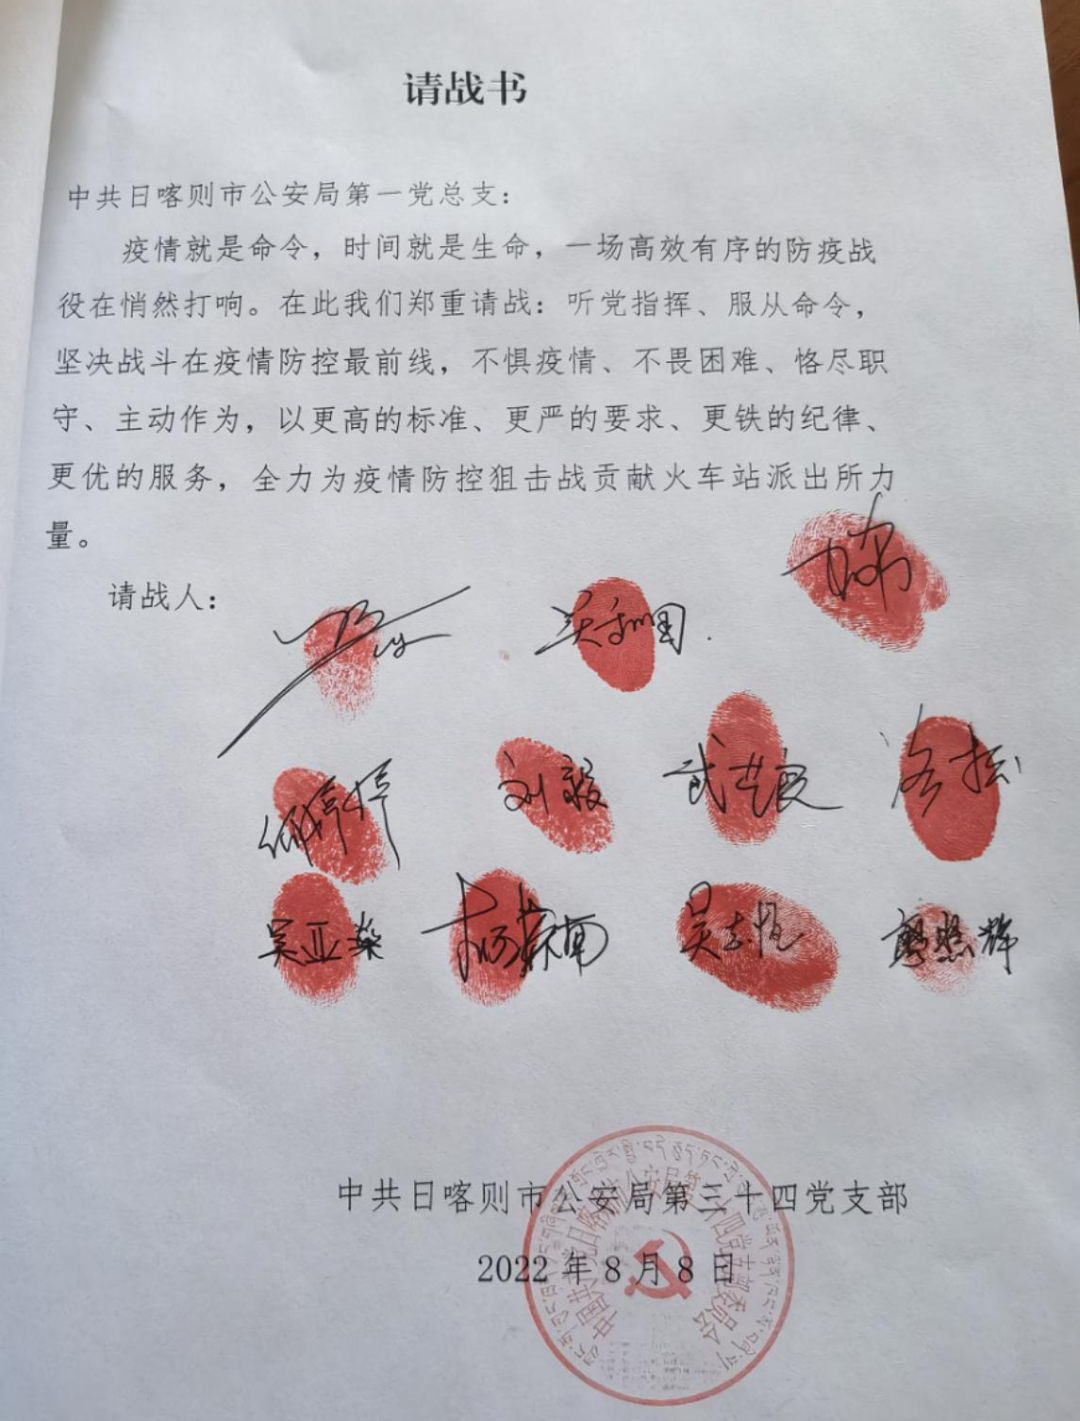 请战书
中共日喀则市公安局第一党总支：
疫情就是命令，时间就是生命，一场高效有序的防疫战
役在悄然打响。在此我们郑重请战：听党指挥、服从命令，
坚决战斗在疫情防控最前线，不惧疫情、不畏困难、恪尽职
守、主动作为，以更高的标准、更严的要求、更铁的纪律、
更优的服务，全力为疫情防控狙击战贡献火车站派出所力
量。
请战人：
何婷婷 刘毅
吴亚燊 杨蔡南 吴志恒 廖照辉
中共日喀则市公安局第三十四党支部
2022年8月8日
中国共产党日喀则市公安局第三十四党支部委员会